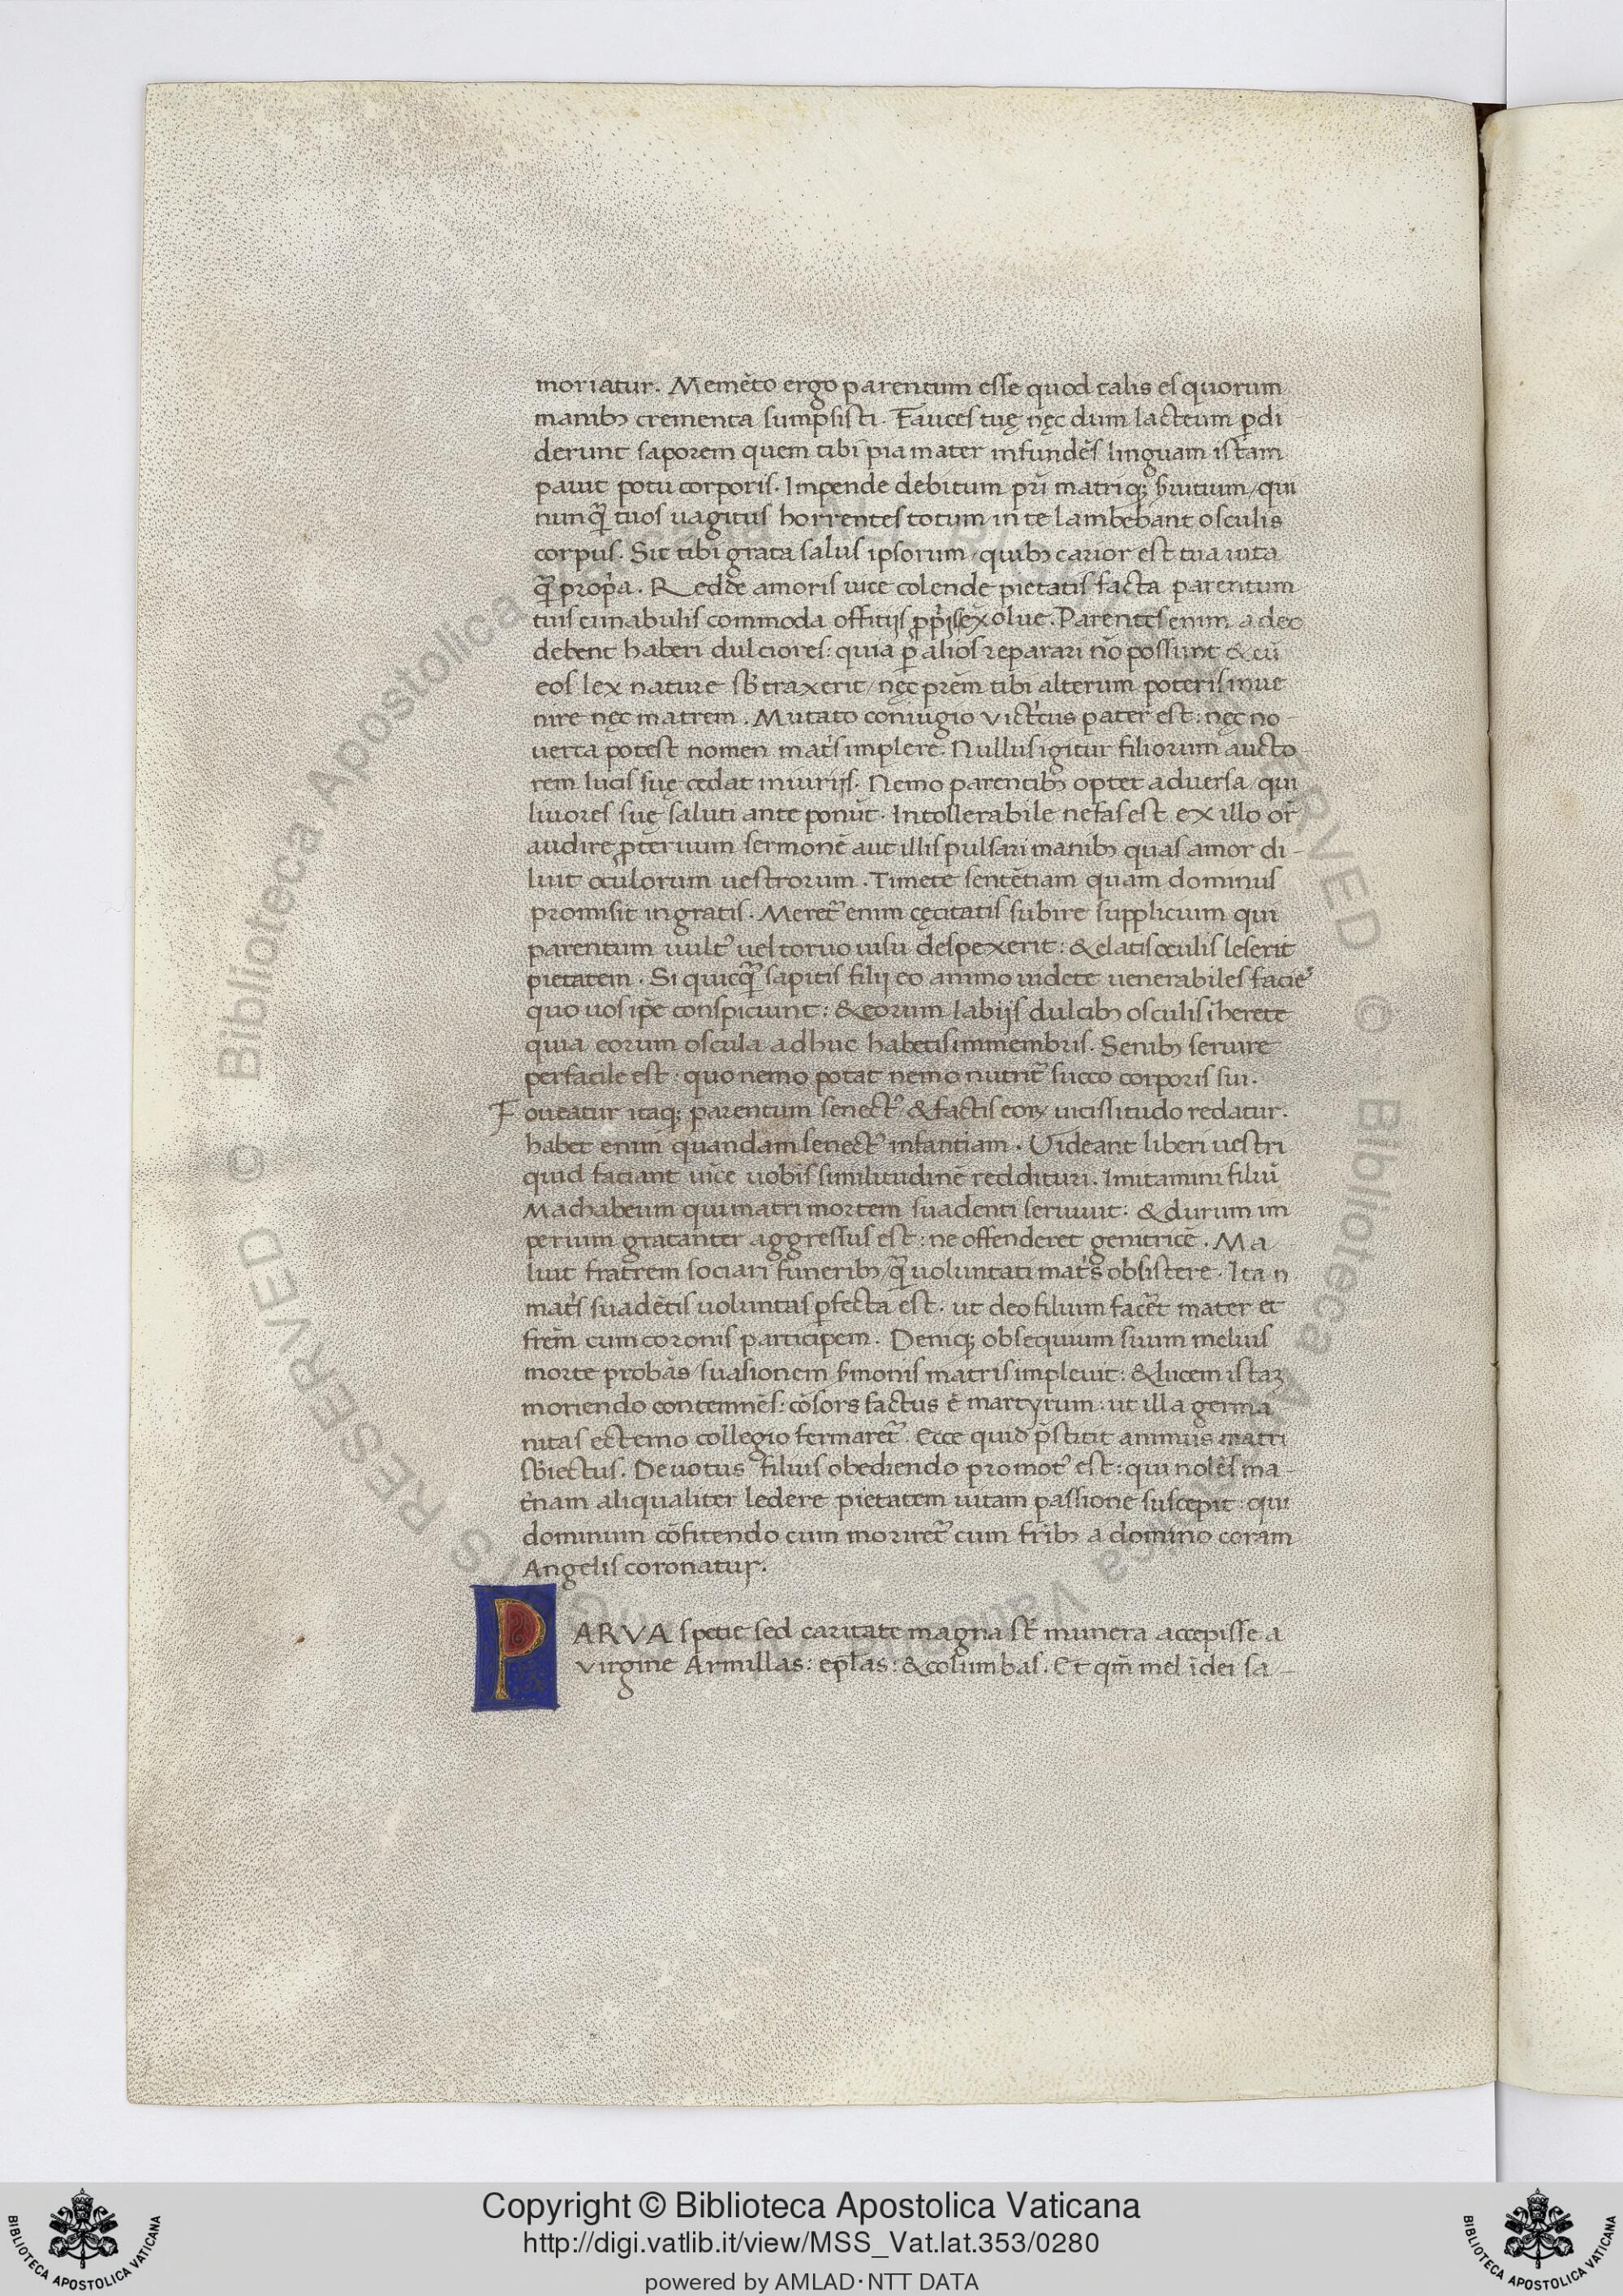 moriatur. Memēto ergo parentum esse quod talis es quorum
manibꝫ crementa sumpsisti. Fauces tuę nęc dum lacteum ꝑdi
derunt saporem quem tibi pia mater infundēs linguam istam
pauit potu corporis. Impende debitum pr̄i matriqꝫ s̄uitium/qui
nunq̄ tuos uagitus horrentes totum in te lambebant osculis
corpus. Sit tibi grata salus ipsorum/quibꝫ carior est tua uita
q̄ propria. Redde amoris uice colende pietatis facta parentum
tuis cunabulis commoda offitijs ꝓprijs exolue. Parentes enim adeo
debent haberi dulciores: quia ꝑ alios reparari nō possunt & cū
eos lex nature sb̄traxerit/nęc prēm tibi alterum poteris inue
nire nęc matrem. Mutato coniugio victricus pater est: nęc no-
uerca potest nomen matr̄s implere. Nullus igitur filiorum aucto
rem lucis suę cedat iniurijs. Nemo parentibꝫ optet aduersa/qui
liuores suę saluti ante ponūt. Intollerabile nefas est ex illo or̄
audire ꝓteruum sermonē aut illis pulsari manibꝫ quas amor di-
luit oculorum uestrorum. Timete sentētiam quam dominus
promisit ingratis. Meret᷑ enim cęcitatis subire supplicium qui
parentum uult᷑ uel toruo uisu despexerit: & elatis oculis leserit
pietatem. Si quicq̄ sapitis filij eo animo uidete uenerabiles faciē
quo uos ip̄e conspiciunt: & eorum labijs dulcibꝫ osculis īherete
quia eorum oscula adhuc habetis in membris. Senibꝫ seruire
perfacile est. quo nemo potat nemo nutrit᷑ succo corporis sui.
Foueatur itaqꝫ parentum senect᷑/& factis eoꝝ uicissitudo redatur.
habet enim quandam senect᷑ infantiam. Uideant liberi uestri
quid faciant uice uobis similitudinē reddituri. Imitamini filiū
Machabeum qui matri mortem suadenti seruiuit: & durum im
perium gratanter aggressus est: ne offenderet genitricē. Ma
luit fratrem sociari funeribꝫ/q̄ uoluntati matr̄s obsistere. Ita n̄
matr̄s suadētis uoluntas ꝑfecta est. ut deo filium facēt mater et
frēm cum coronis participem. Deniqꝫ obsequium suum melius
morte probās/suasionem s̄monis matris impleuit: & lucem istaꝫ
moriendo contemnēs: cōsors factus ē martyrum: ut illa germa
nitas ęcterno collegio fermaret᷑. Ecce quid p̄stitit animus matri
sb̄iectus. Deuotus filius obediendo promot᷑ est: qui nolēs ma-
t̄nam aliqualiter ledere pietatem uitam passione suscepit: qui
dominum cōfitendo cum moriret᷑ cum frībꝫ a domino coram
Angelis coronatur.
PARVA spetie sed caritate magna st̄ munera accepisse a
virgine Armillas: ep̄las: & columbas. Et qm̄ mel ī dei sa-
Copyright © Biblioteca Apostolica Vaticana
http://digi.vatlib.it/view/MSS_Vat.lat.353/0280
powered by AMLAD·NTT DATA